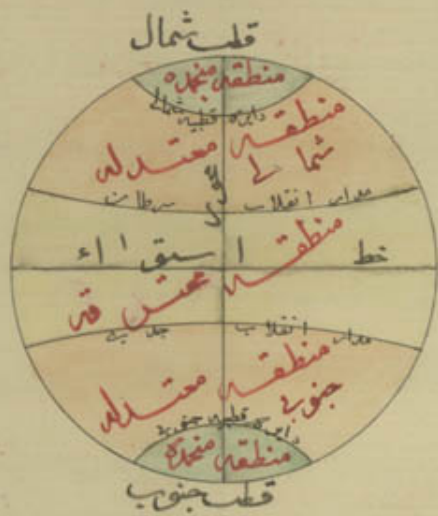 قطب شمال
منطقهٔ منجمده
دایرهٔ قطبیهٔ شمالی
منطقهٔ معتدلهٔ
شمالی
مدار انقلاب سرطان
خط استواء
منطقهٔ محترقه
مدار انقلاب جدی
منطقهٔ معتدلهٔ
جنوبی
دایرهٔ قطبیهٔ جنوبی
منطقهٔ منجمده
قطب جنوب